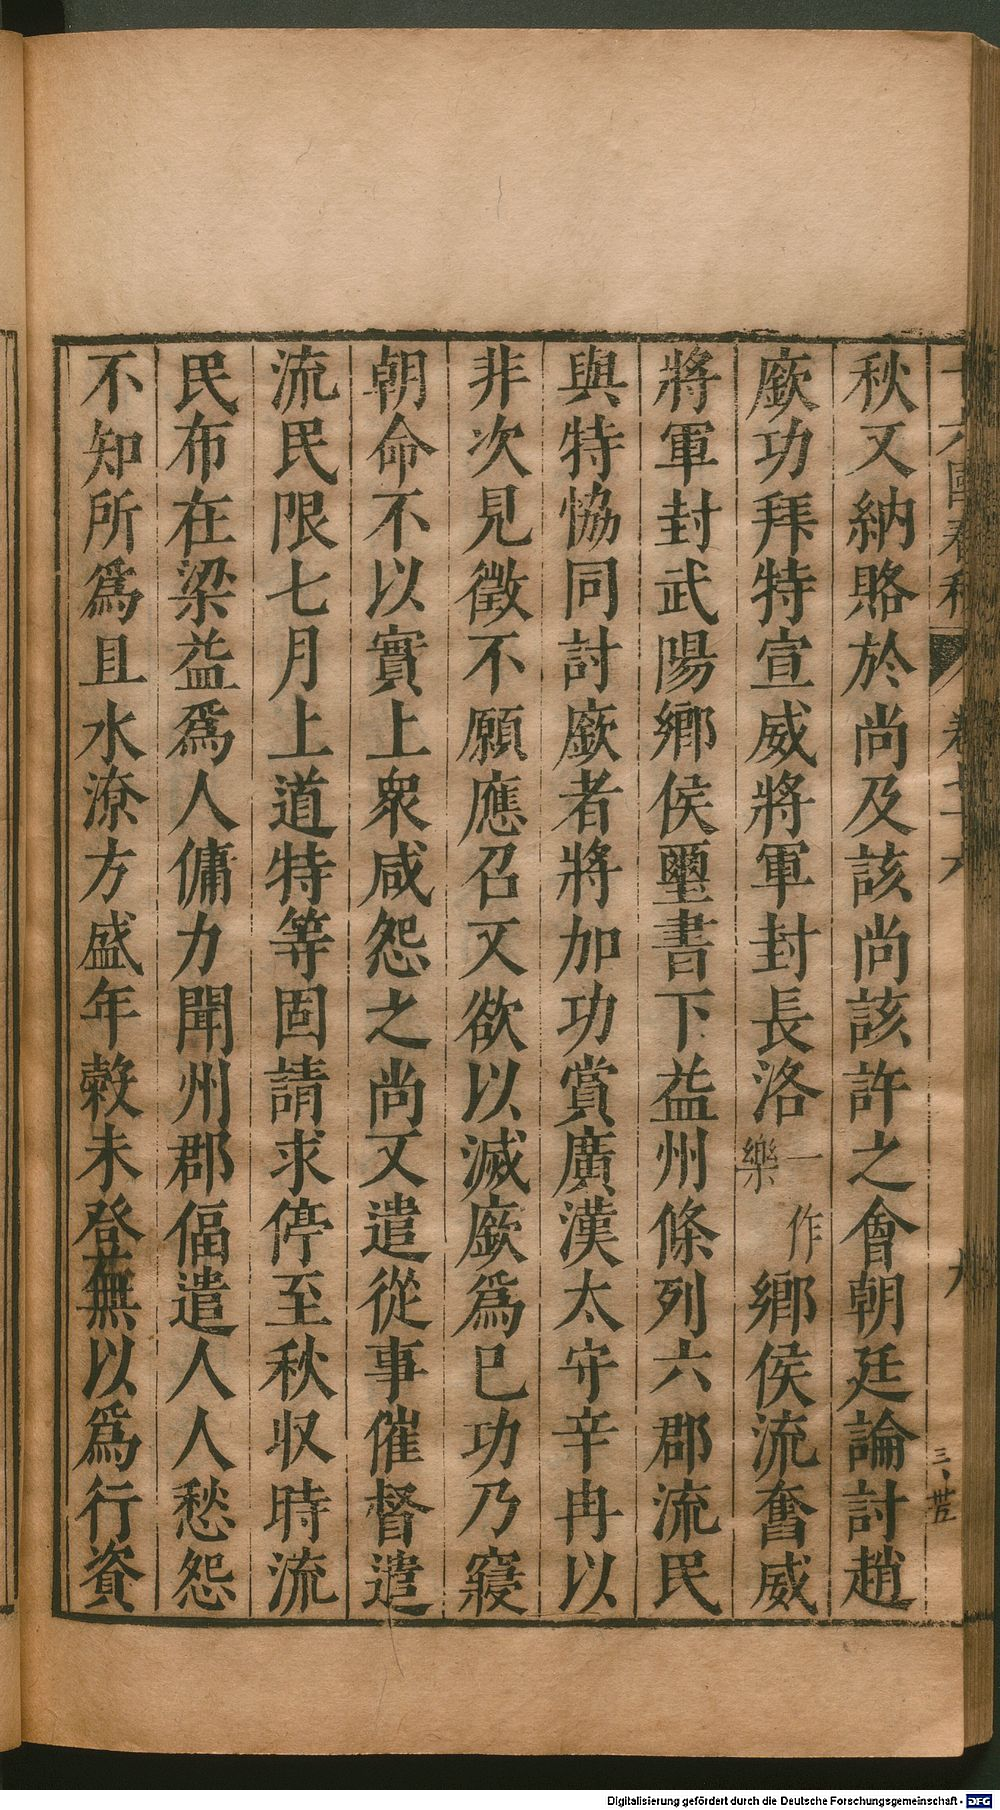 十六國春秋 卷七十六 九
三、廿五
秋又納賂於尚及該尚該許之會朝廷論討趙
廞功拜特宣威將軍封長洛一作樂鄉侯流奮威
將軍封武陽鄉侯璽書下益州條列六郡流民
與特恊同討廞者將加功賞廣漢太守辛冉以
非次見徵不願應召又欲以滅廞爲巳功乃寢
朝命不以實上衆咸怨之尚又遣從事催督遣
流民限七月上道特等固請求停至秋収時流
民布在梁益爲人傭力聞州郡偪遣人人愁怨
不知所爲且水潦方盛年榖未登無以爲行資
Digitalisierung gefördert durch die Deutsche Forschungsgemeinschaft - DFG